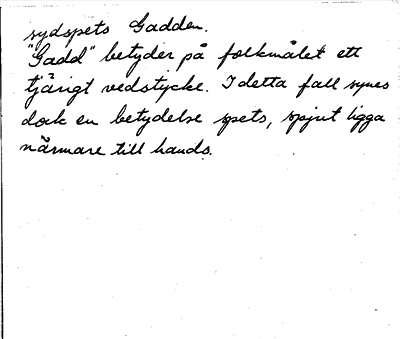 sydspets Gadden.
"Gadd" betyder på folkmålet ett
tjärigt vedstycke. I detta fall synes
dock en betydelse spets, spjut ligga
närmare till hands.